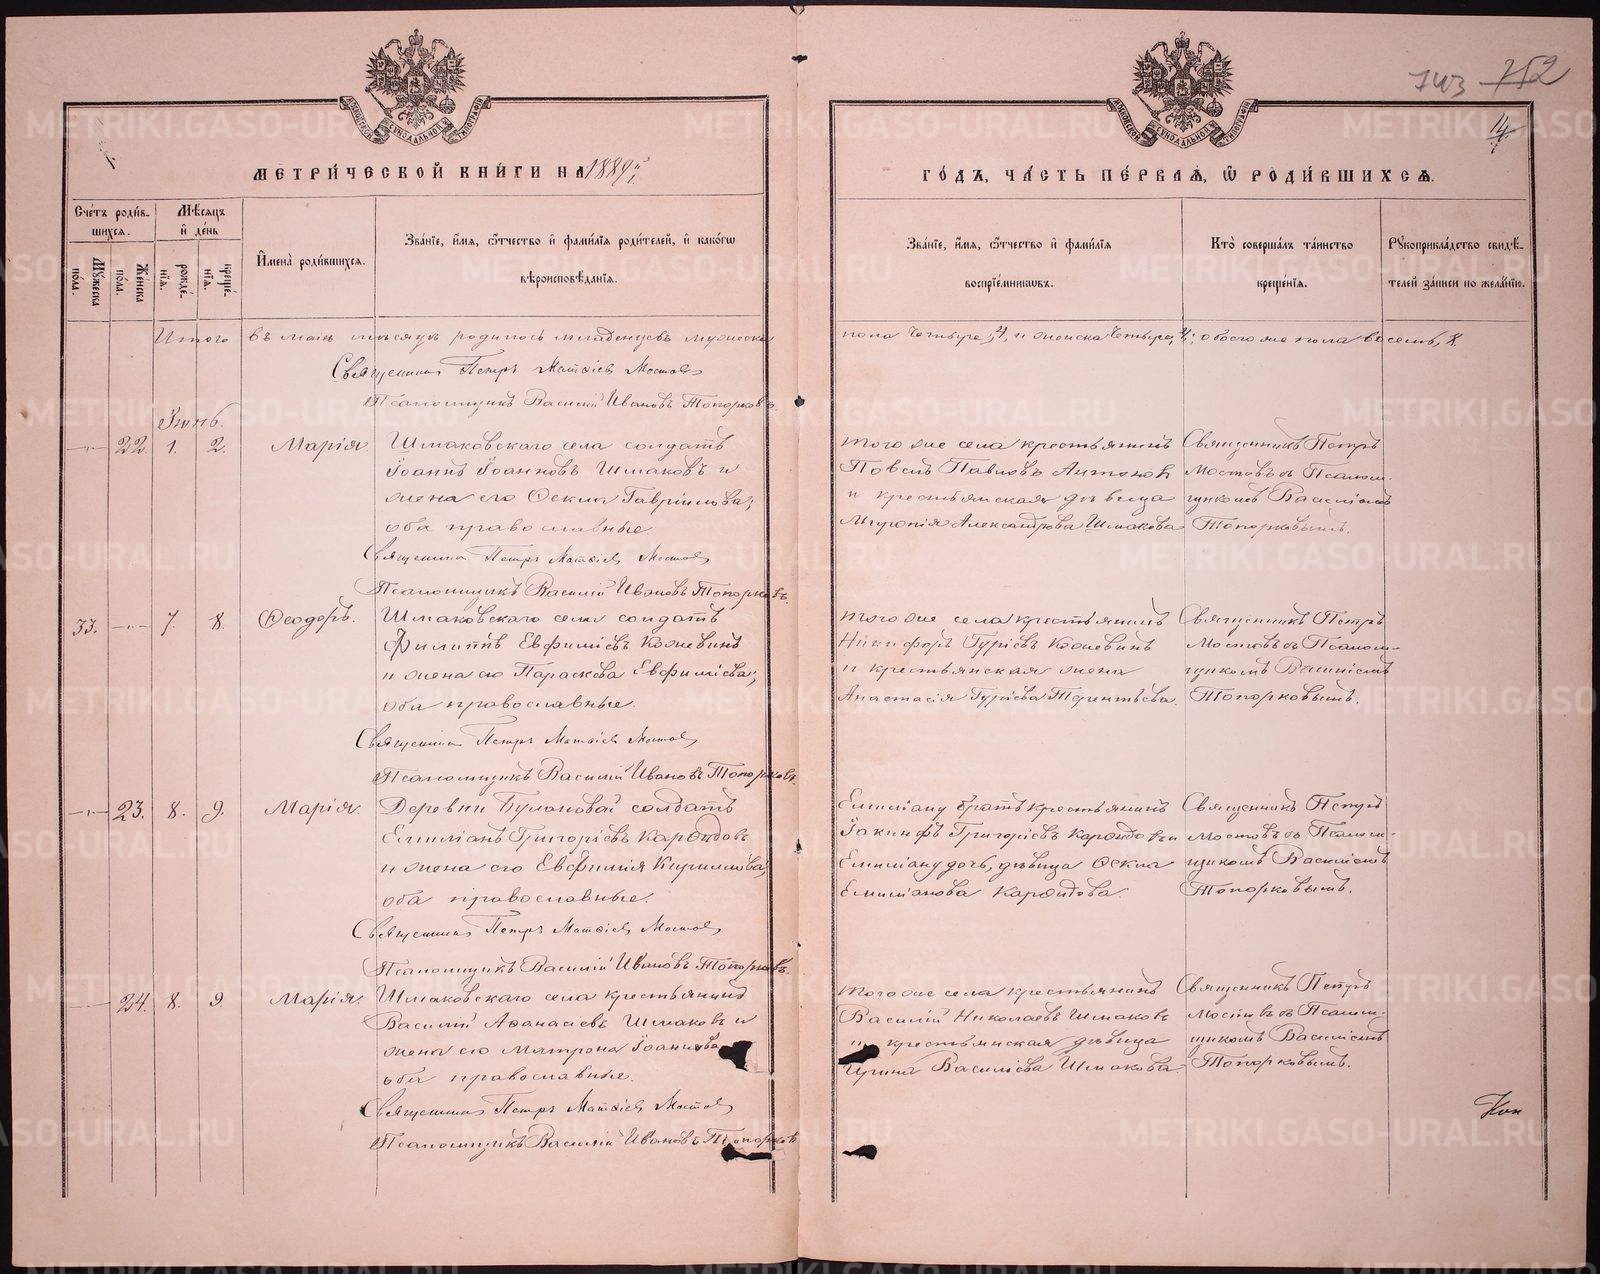 743 752
14
МОСКОВСКОЙ СУНОДАЛЬНОЙ ТИПОГРАФІИ
МОСКОВСКОЙ СУНОДАЛЬНОЙ ТИПОГРАФІИ
МЕТРИ́ЧЕСКОЙ КНИ́ГИ НА 1889
ГО́ДЪ, ЧА́СТЬ ПЕ́РВАѦ, Ѡ РОДИ́ВШИХСѦ.
Сче́тъ роди́в-
шихсѧ.
Мꙋжеска
по́ла.
Же́нска
по́ла.
Мѣ́сяцъ
и҆ де́нь
рожде́-
нїѧ.
креще́-
нїѧ.
И҆мена̀ роди́вшихсѧ.
Зва́нїе, и҆́мѧ, ѻ҆́тчество и҆ фами́лїѧ роди́телей, и҆ како́гѡ
вѣроисповѣ́данїѧ.
Зва́нїе, и҆́мѧ, ѻ҆́тчество и҆ фами́лїѧ
воспрїе́мникѡвъ.
Кто̀ соверша́лъ та́инство
креще́нїѧ.
Рꙋкоприкла́дство свидѣ́-
телей за́писи по жела́нїю.
Итого въ маѣ мѣсяцѣ родилось младенцевъ мужеска
пола четыре, 4, и женска четыре, 4; обоего же пола восемь, 8.
Священникъ Петръ Матѳіевъ Мостовъ
Псаломщикъ Василій Ивановъ Топорковъ.
Іюнь.
22. 1. 2. Марія. Шмаковскаго села солдатъ
Іоаннъ Іоанновъ Шмаковъ и
жена его Ѳекла Гавріилова;
оба православные.
того же села крестьянинъ
Павелъ Павловъ Антоновъ
и крестьянская дѣвица
Александрова Шмакова
Священникъ Петръ
Мостовъ съ Псалом-
щикомъ Василіемъ
Топорковымъ.
Священникъ Петръ Матѳіевъ Мостовъ
Псаломщикъ Василій Ивановъ Топорковъ.
33. 7. 8. Ѳеодоръ. Шмаковскаго села солдатъ
Филиппъ Евфиміевъ Кожевинъ
и жена его Параскева Евфиміева;
оба православные.
того же села крестьянинъ
Никифоръ Гуріевъ Кожевинъ
и крестьянская жена
Анастасія Гуріева Терентьева.
Священникъ Петръ
Мостовъ съ Псалом-
щикомъ Василіемъ
Топорковымъ.
Священникъ Петръ Матѳіевъ Мостовъ
Псаломщикъ Василій Ивановъ Топорковъ.
23. 8. 9. Марія. Деревни Булановой солдатъ
Емиліанъ Григоріевъ
и жена его Евфимія Кириллова;
оба православные.
Емиліану братъ крестьянинъ
Іакинфъ Григоріевъ и
Емиліану дочь, дѣвица Ѳекла
Емиліанова
Священникъ Петръ
Мостовъ съ Псалом-
щикомъ Василіемъ
Топорковымъ.
Священникъ Петръ Матѳіевъ Мостовъ
Псаломщикъ Василій Ивановъ Топорковъ.
24. 8. 9. Марія. Шмаковскаго села крестьянинъ
Василій Аѳанасіевъ Шмаковъ и
жена его Матрона Іоаннова
оба православные.
того же села крестьянинъ
Василій Николаевъ Шмаковъ
и крестьянская дѣвица
Ирина Василіева Шмакова.
Священникъ Петръ
Мостовъ съ Псалом-
щикомъ Василіемъ
Топорковымъ.
Священникъ Петръ Матѳіевъ Мостовъ
Псаломщикъ Василій Ивановъ Топорковъ
METRIKI.GASO-URAL.RU